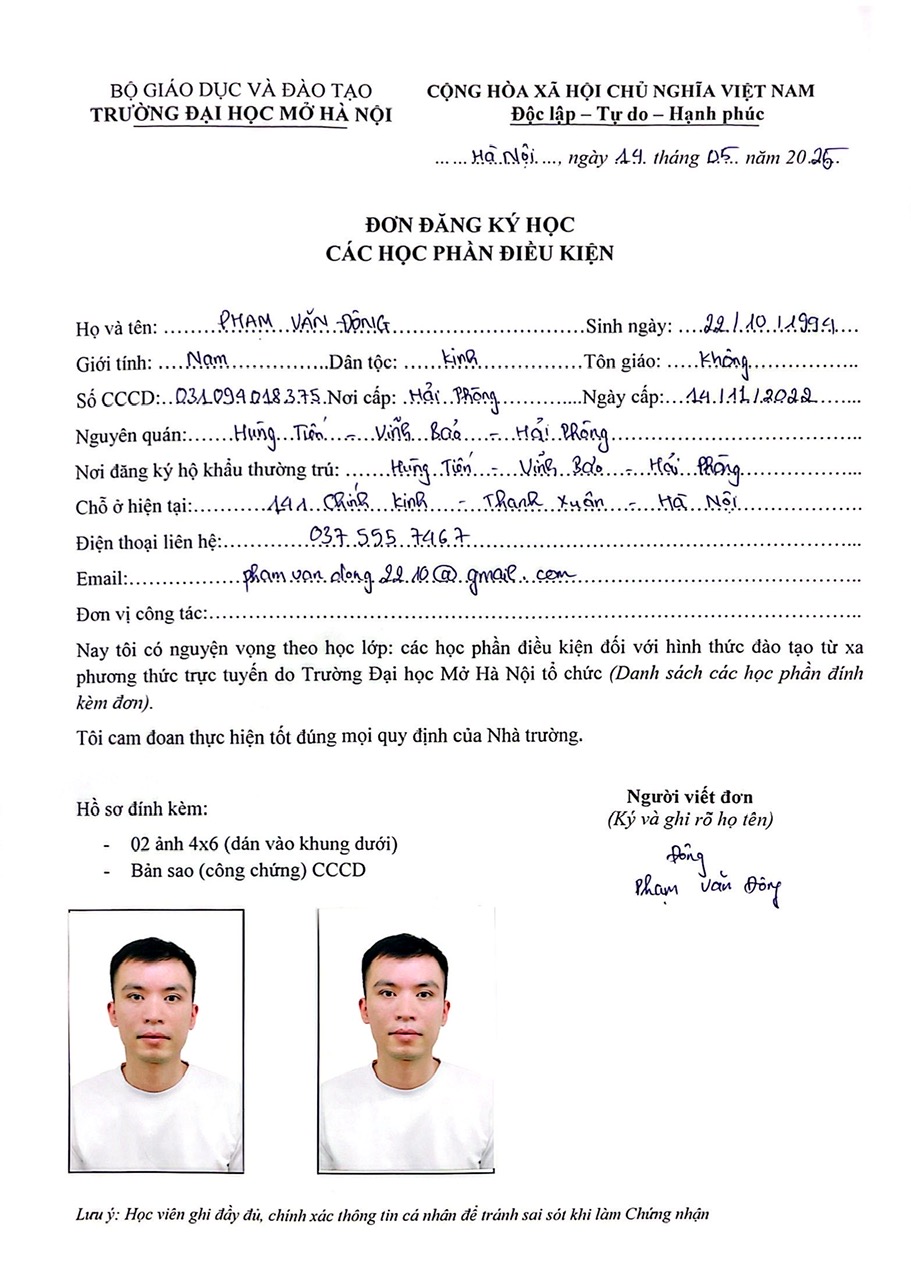 BỘ GIÁO DỤC VÀ ĐÀO TẠO
TRƯỜNG ĐẠI HỌC MỞ HÀ NỘI
CỘNG HÒA XÃ HỘI CHỦ NGHĨA VIỆT NAM
Độc lập – Tự do – Hạnh phúc
Hà Nội, ngày 14 tháng 05 năm 2025
ĐƠN ĐĂNG KÝ HỌC
CÁC HỌC PHẦN ĐIỀU KIỆN
Họ và tên: PHẠM VĂN ĐÔNG Sinh ngày: 22/10/1994
Giới tính: Nam Dân tộc: Kinh Tôn giáo: Không
Số CCCD: 031094018375 Nơi cấp: Hải Phòng Ngày cấp: 14/11/2022
Nguyên quán: Hùng Tiến - Vĩnh Bảo - Hải Phòng
Nơi đăng ký hộ khẩu thường trú: Hùng Tiến - Vĩnh Bảo - Hải Phòng
Chỗ ở hiện tại: 141 Chính Kinh - Thanh Xuân - Hà Nội
Điện thoại liên hệ: 037 555 7467
Email: phamvandong2210@gmail.com
Đơn vị công tác:
Nay tôi có nguyện vọng theo học lớp: các học phần điều kiện đối với hình thức đào tạo từ xa
phương thức trực tuyến do Trường Đại học Mở Hà Nội tổ chức (Danh sách các học phần đính
kèm đơn).
Tôi cam đoan thực hiện tốt đúng mọi quy định của Nhà trường.
Hồ sơ đính kèm:
- 02 ảnh 4x6 (dán vào khung dưới)
- Bản sao (công chứng) CCCD
Người viết đơn
(Ký và ghi rõ họ tên)
Đông
Phạm Văn Đông
Lưu ý: Học viên ghi đầy đủ, chính xác thông tin cá nhân để tránh sai sót khi làm Chứng nhận